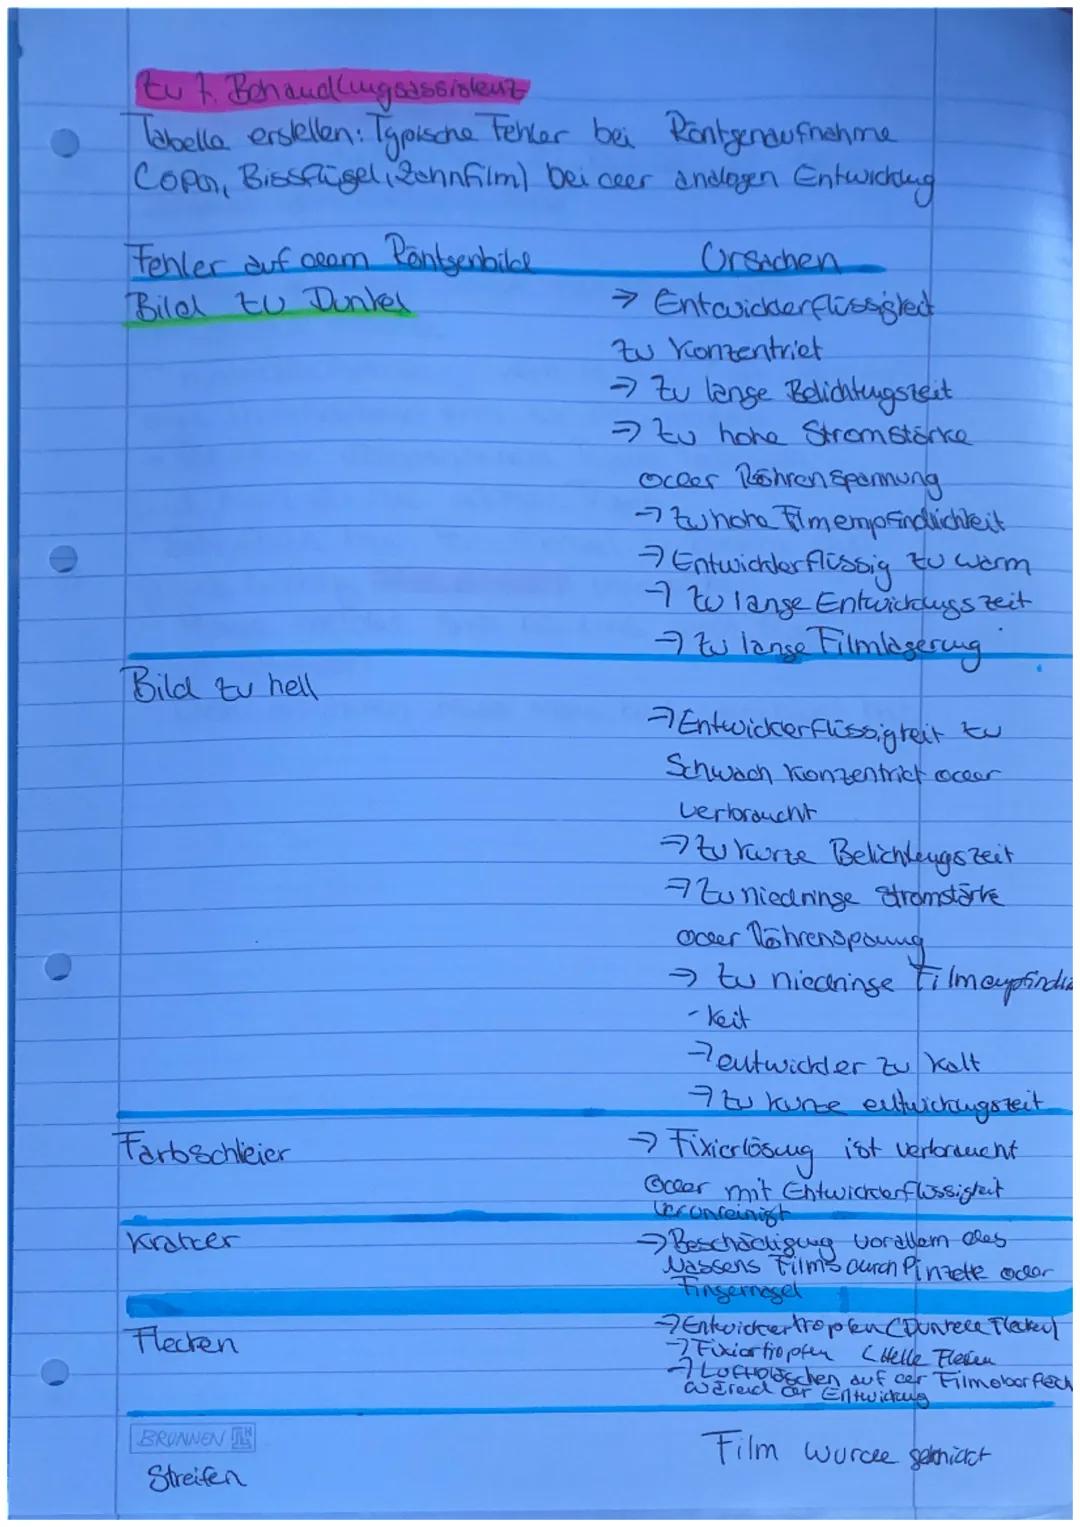 Zu 7. Behandlungsassistenz
Tabelle erstellen: Typische Fehler bei Röntgenaufnahme
(OPGn, Bissflügel, Zahnfilm) bei der analogen Entwicklung
Fehler auf dem Röntgenbild Ursachen
Bild zu Dunkel → Entwicklerflüssigkeit
zu konzentriet
→ zu lange Belichtungszeit
→ zu hohe Stromstärke
oder Röhrenspannung
→ zu hohe Filmempfindlichkeit
→ Entwicklerflüssig zu warm
→ zu lange Entwicklugszeit
→ zu lange Filmlagerung
Bild zu hell
→ Entwickerflüssigkeit zu
Schwach konzentriet oder
verbraucht
→ zu kurze Belichtungszeit
→ zu niedringe Stromstärke
oder Röhrenspanung
→ zu niedringe Filmempfindlich
-keit
→ entwickler zu kalt
→ zu kurze entwickungszeit
Farbschleier → Fixierlösung ist verbraucht
oder mit Entwicklerflüssigkeit
verunreinigt
Kratzer → Beschädigung vorallem des
Nassens Films durch Pinzette oder
Fingernagel
Flecken → Entwicklertropfen (Dunkele Flecken)
→ Fixiertropfen (Helle Flecken
→ Luftbläschen auf der Filmoberfläch
wärend der Entwicklug
BRUNNEN
Streifen Film wurde geknickt